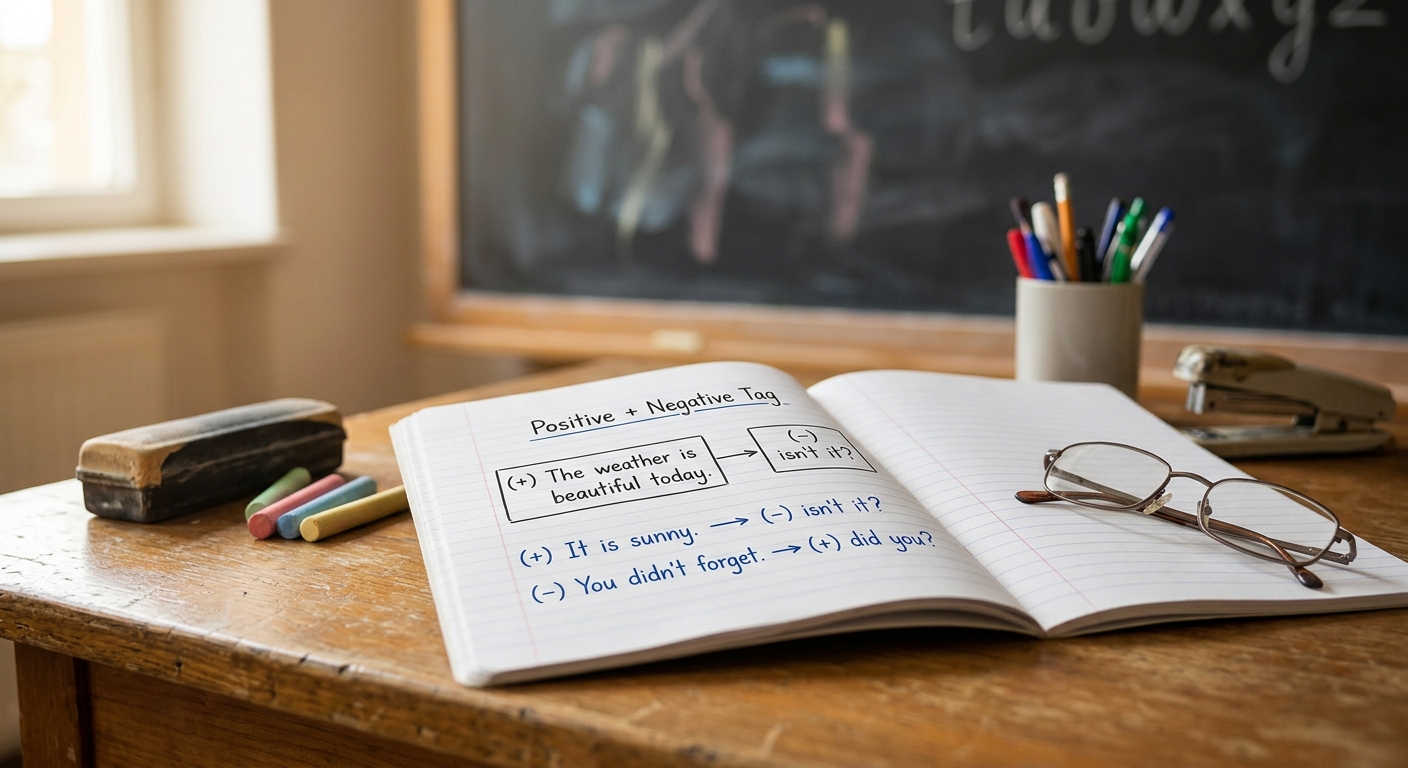 Positive + Negative Tag
(+) The weather is
beautiful today.
(-)
isn't it?
(+) It is sunny. → (-) isn't it?
(-) You didn't forget. → (+) did you?